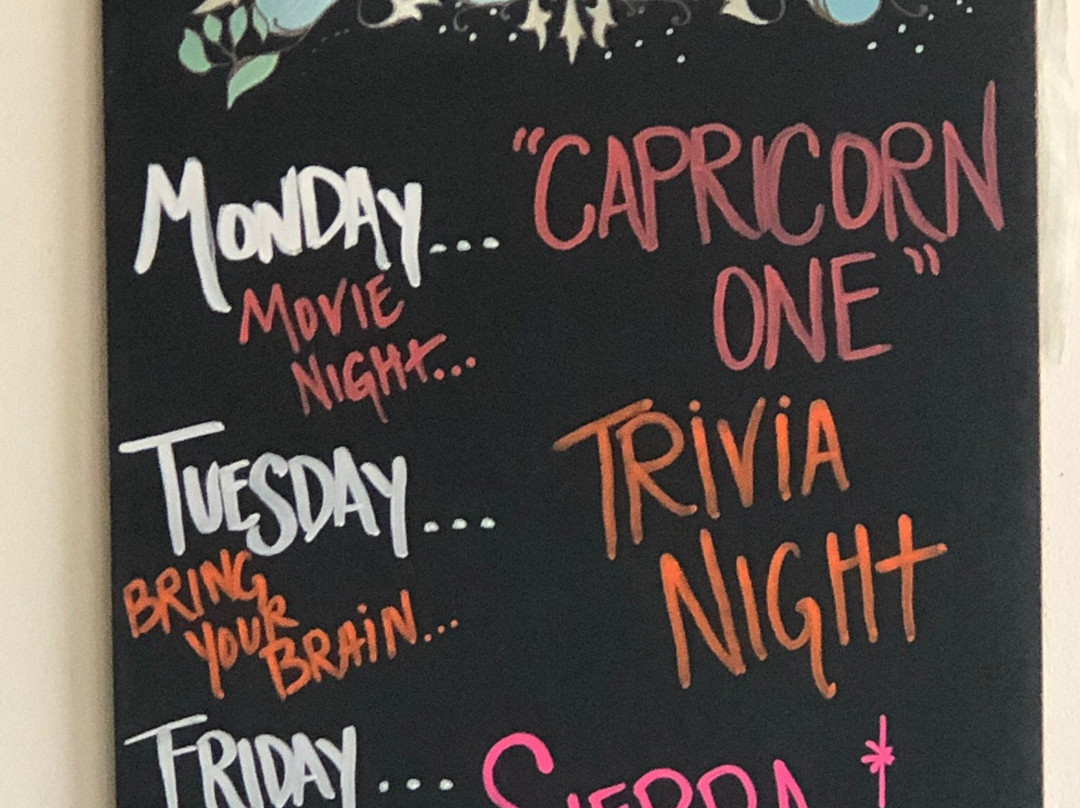 Monday... "CAPRICORN
ONE"
MOVIE
NIGHT...
TUESDAY... TRiViA
NIGHT
BRING
YOUR
BRAiN...
FRIDAY... SIERRA